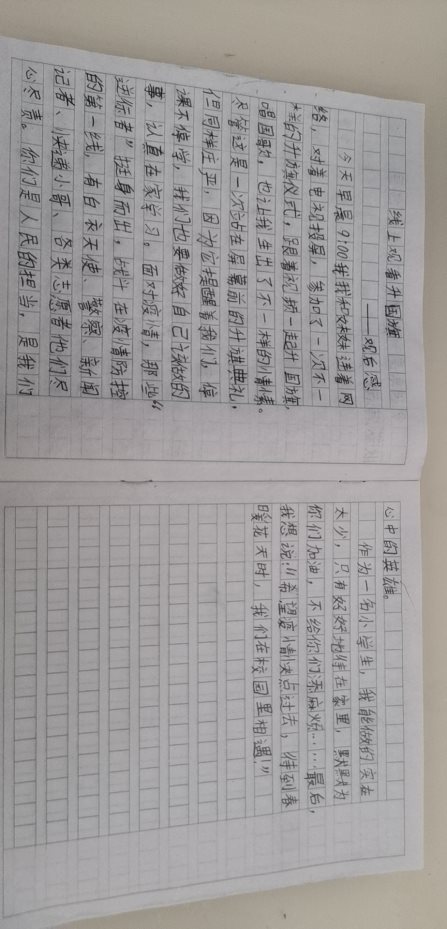 线上观看升国旗
——观后感
今天早晨9:00我和妹妹连着网
络，对着电视投屏，参加了一次不一
样的升旗仪式，跟着视频一起升国旗，
唱国歌，也让我生出了不一样的情愫。
尽管这是一次站在屏幕前的升旗典礼，
但同样庄严，因为它提醒着我们，停
课不停学，我们也要做好自己小孩的
事，认真在家学习。面对疫情，那些“
逆行者”挺身而出，战斗在疫情防控
的第一线，有白衣天使、警察、新闻
记者、快递小哥、各类志愿者他们尽
心尽责。你们是人民的担当，是我们
心中的英雄。
作为一名小学生，我能做的实在
太少，只有好好地待在家里，默默为
你们加油，不给你们添麻烦……最后，
我想说：“希望疫情快点过去，待到春
暖花开时，我们在校园里相遇！”